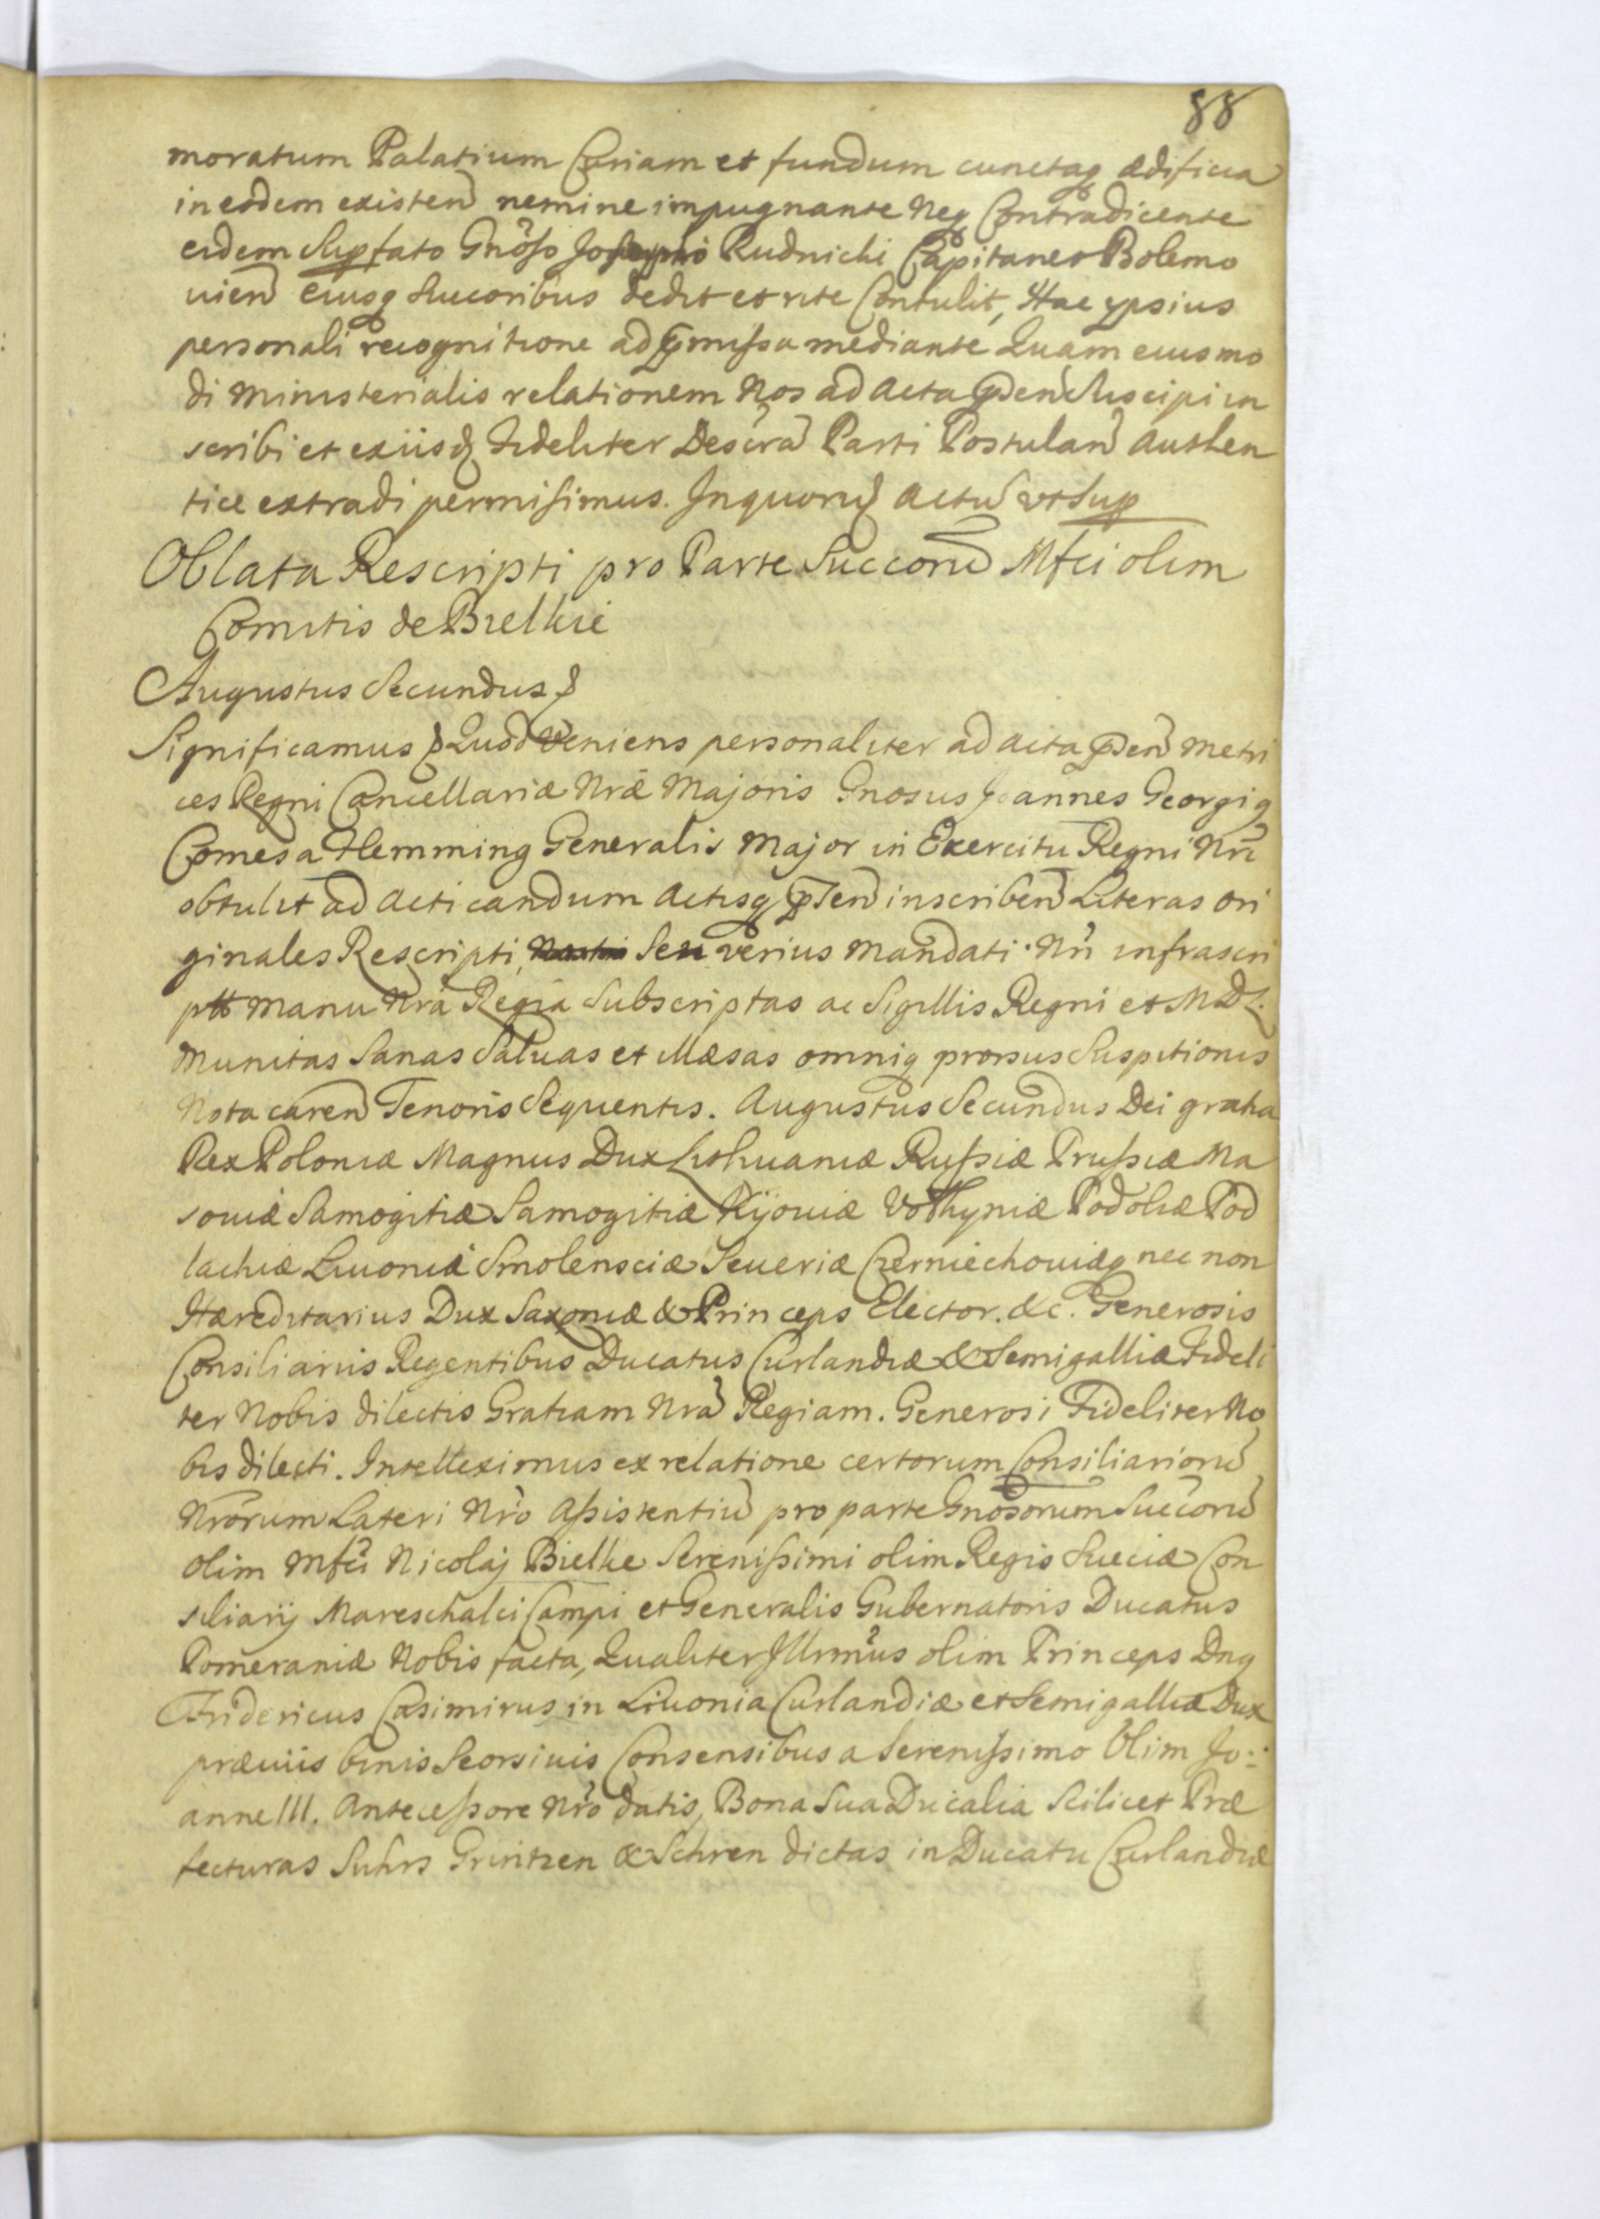 88
moratum Palatium Curiam et fundum cunctaq ædificia
in eodem existen nemine impugnante Neq Contradicente
eidem Supfato Gnoso Josepho Rudnicki Capitaneo Bolemo
uien eiusq Succoribus dedit et rite Contulit, Hac ypsius
personali recognitione ad præmissa mediante Quam eiusmo
di Ministerialis relationem Nos ad Acta præsen Suscipi in
scribi et exiisq Fideliter Descra Parti Postulan Authen
tice extradi permisimus. Inquoru Actu vt Sup
Oblata Rescripti pro Parte Succoru Mfci olim
Comitis de Bielkie
Augustus Secundus
Significamus Quod Veniens personaliter ad Acta præsen Metri
ces Regni Cancellariæ Nræ Majoris Gnosus Joannes Georgiq
Comes a Flemming Generalis Major in Exercitu Regni Nri
obtulit ad Acticandum Actisq præsen inscriben Literas Ori
ginales Rescripti, Seu verius Mandati Nri infrascri
ptt Manu Nra Regia Subscriptas ac Sigillis Regni et M D L.
Munitas Sanas Saluas et Illæsas omniq prorsus Suspitionis
Nota caren Tenoris Sequentis. Augustus Secundus Dei gratia
Rex Poloniæ Magnus Dux Lithuaniæ Russiæ Prussiæ Ma
souiæ Samogitiæ Samogitiæ Kijouiæ Volhyniæ Podoliæ Pod
lachiæ Liuoniæ Smolensciæ Seueriæ Czerniechouiæq nec non
Hæreditarius Dux Saxoniæ & Princeps Elector. &c. Generosis
Consiliariis Regentibus Ducatus Curlandiæ & Semigalliæ Fideli
ter Nobis dilectis Gratiam Nra Regiam. Generosi Fideliter No
bis dilecti. Intelleximus ex relatione certorum Consiliarioru
Nrorum Lateri Nro Assistentiu pro parte Gnosorum Succoru
olim Mfci Nicolaj Bielke Serenissimi olim Regis Sueciæ Con
siliarij Mareschalci Campi et Generalis Gubernatoris Ducatus
Pomeraniæ Nobis facta, Qualiter Illrmus olim Princeps Dnq
Fridericus Casimirus in Liuonia Curlandiæ et Semigalliæ Dux
præuiis binis Seorsiuis Consensibus a Serenissimo Olim Jo:
anne III. Antecessore Nro datis, Bona Sua Ducalia Scilicet Præ
fecturas Suhrs Grintzen & Schren dictas in Ducatu Curlandiæ